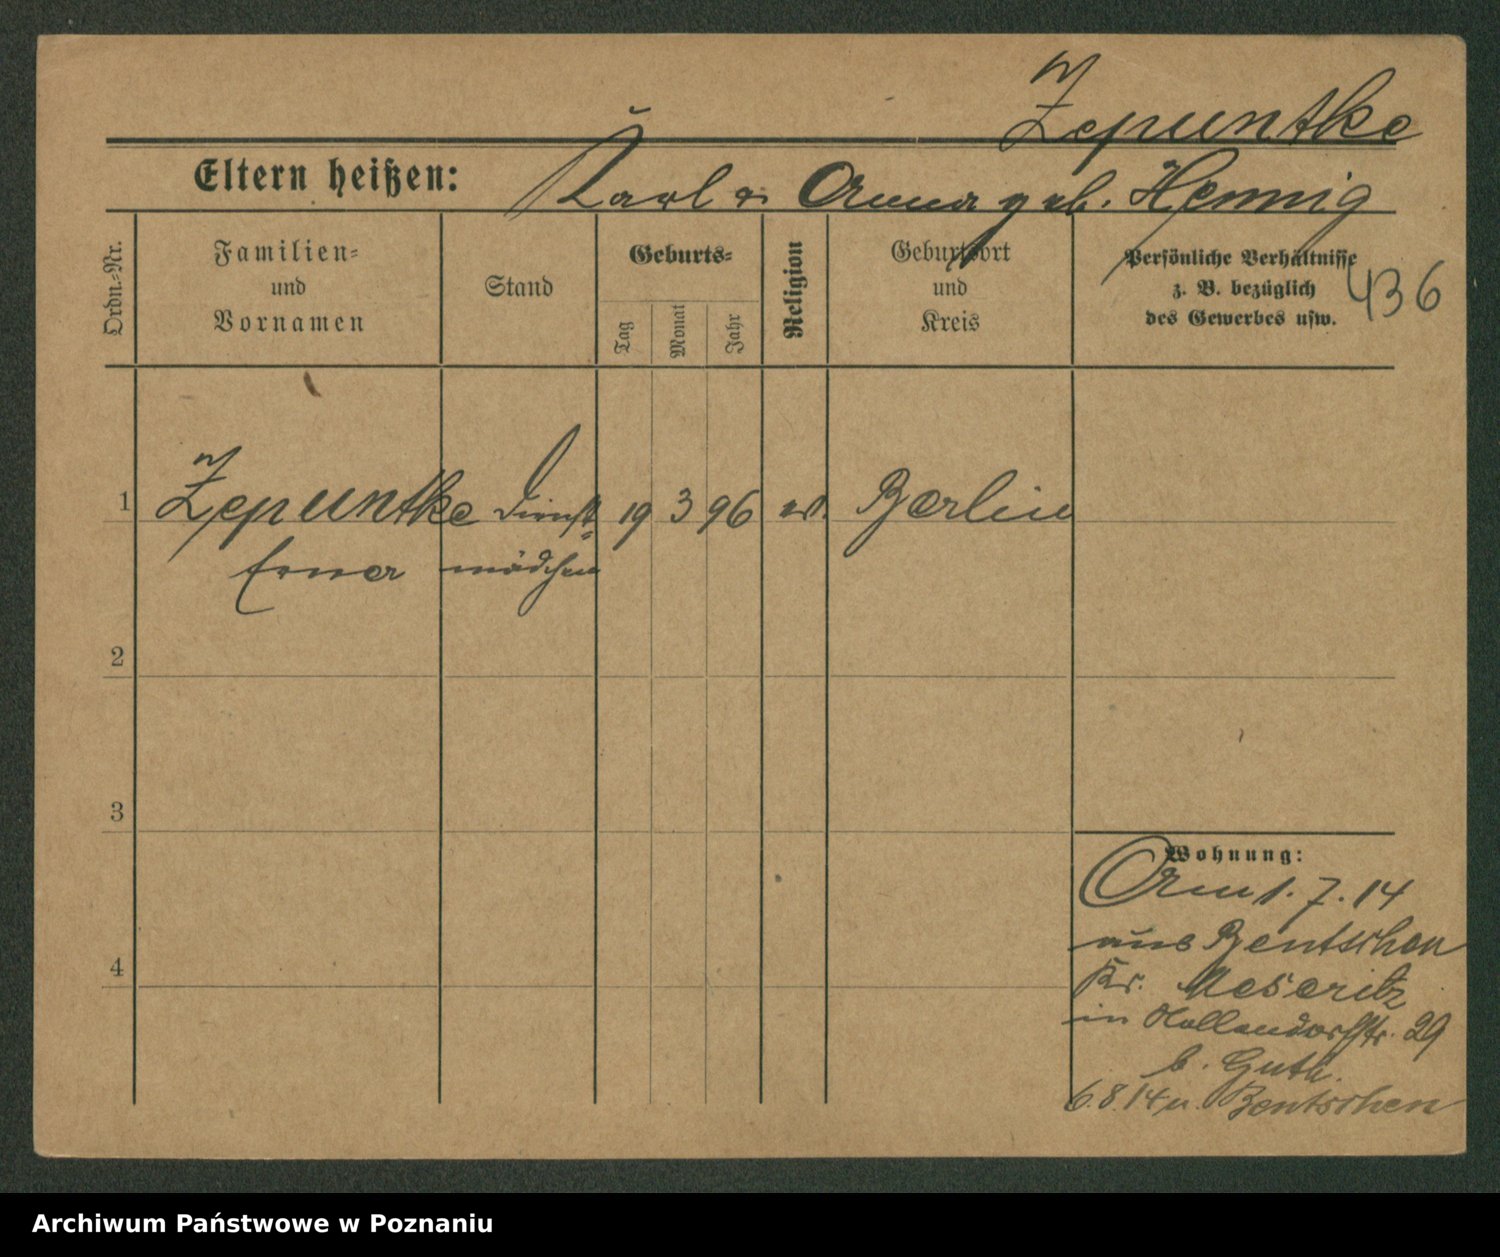 Zepuntke
Eltern heißen: Karl u. Anna geb. Hennig
Ordn.-Nr.
Familien-
und
Vornamen
Stand
Geburts-
Tag
Monat
Jahr
Religion
Geburtsort
und
Kreis
Persönliche Verhältnisse
z. B. bezüglich
des Gewerbes usw.
436
1 Zepuntke Dienst- 19 3 96 ev. Berlin
Erna mädchen
2
3
4
Wohnung:
Am 1. 7. 14
aus Bentschen
Kr. Meseritz
in Hollendorffstr. 29
b. Guth.
6.8.14 n. Bentschen
Archiwum Państwowe w Poznaniu